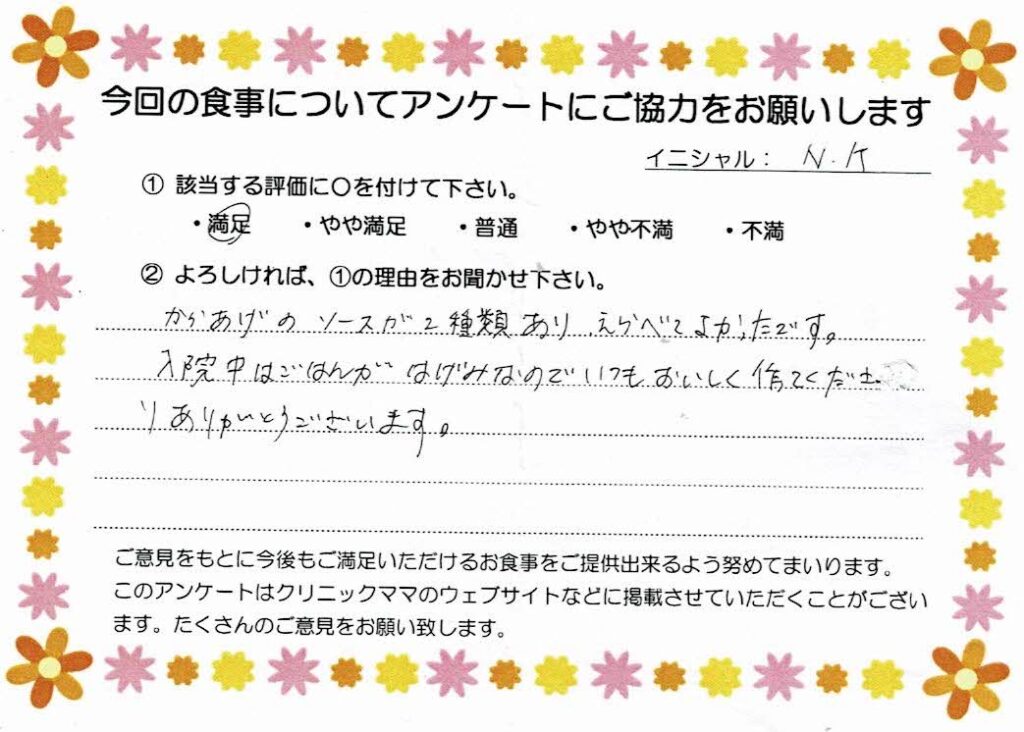 今回の食事についてアンケートにご協力をお願いします
イニシャル： N.K
① 該当する評価に〇を付けて下さい。
・満足 ・やや満足 ・普通 ・やや不満 ・不満
② よろしければ、①の理由をお聞かせ下さい。
からあげのソースが2種類あり えらべてよかったです。
入院中はごはんがはげみなのでいつもおいしく作てくださ
りありがとうございます。
ご意見をもとに今後もご満足いただけるお食事をご提供出来るよう努めてまいります。
このアンケートはクリニックママのウェブサイトなどに掲載させていただくことがござい
ます。たくさんのご意見をお願い致します。